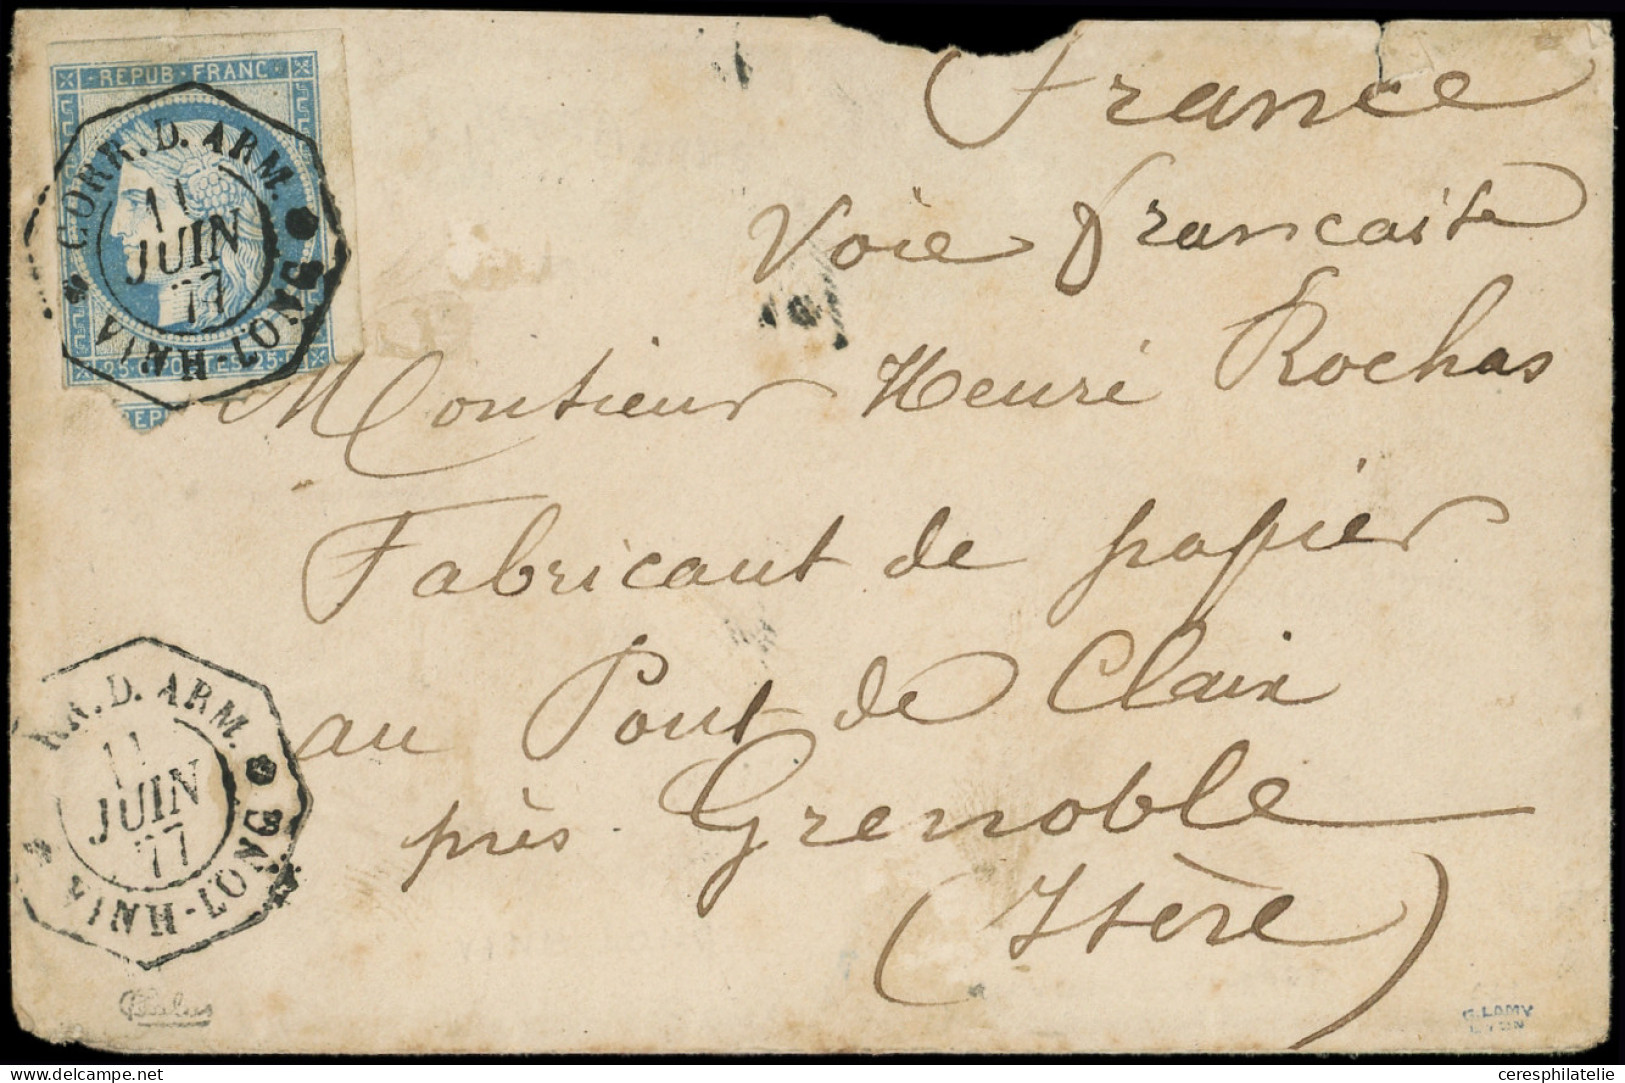 REPUB·FRANC
CORR.D.ARM.
11
JUIN
77
VINH-LONG
25·C·POSTES·25·C
REP
France
Voie francaise
Monsieur Henri Rochas
Fabricant de papier
au Pont de Claix
près Grenoble
(Isère)
RR.D.ARM.
11
JUIN
77
VINH-LONG
Calves
G. LAMY
LYON
ceresphilatelie